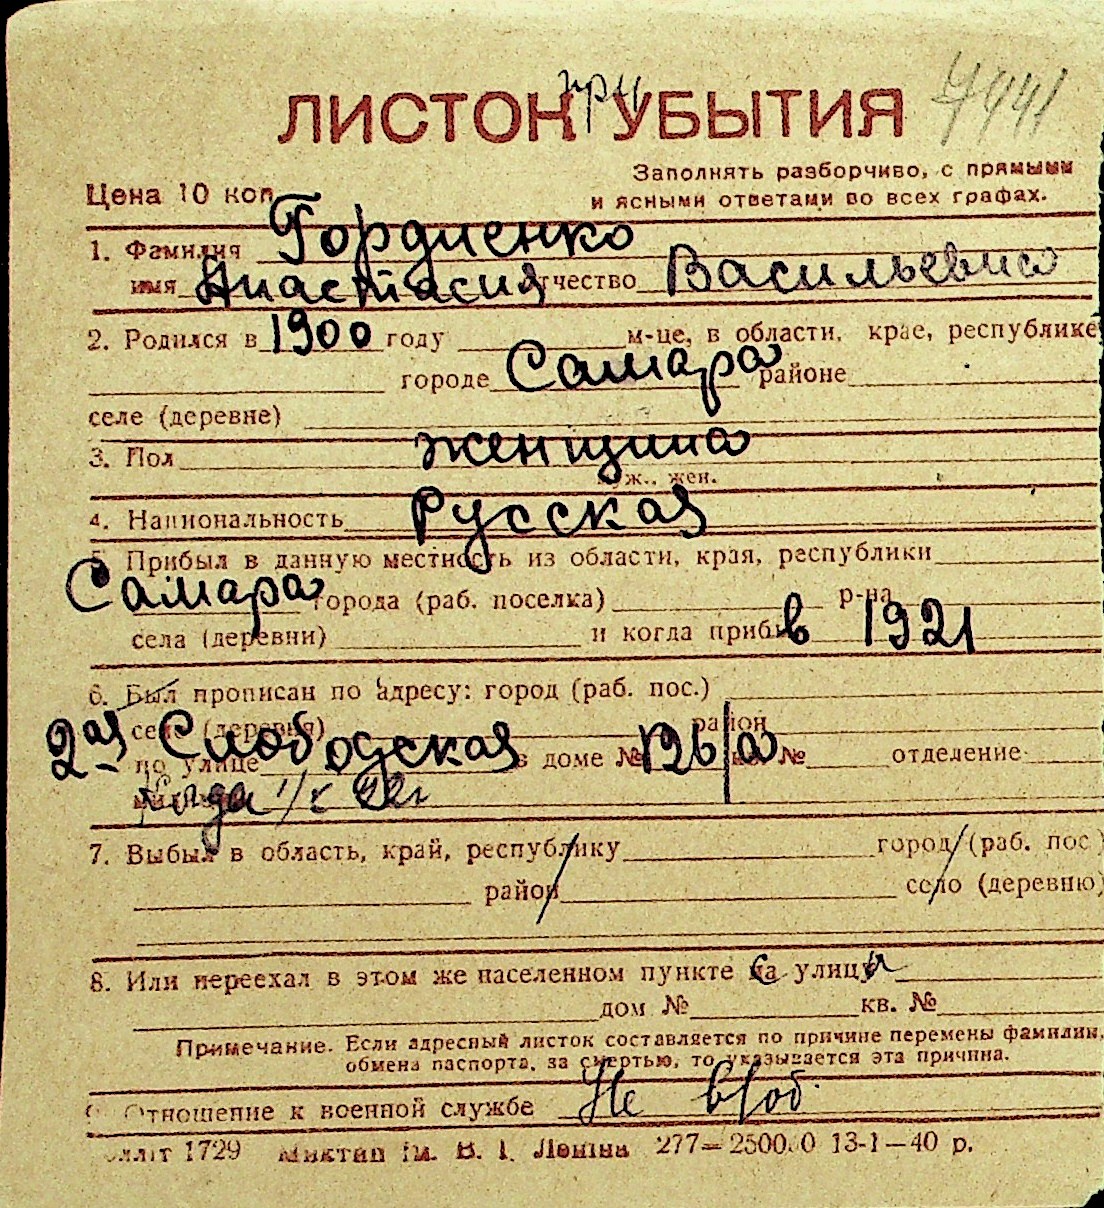 ЛИСТОК при УБЫТИЯ
Заполнять разборчиво, с прямыми
Цена 10 коп. и ясными ответами во всех графах.
1. Фамилия Гордиенко
имя Анастасия отчество Васильевна
2. Родился в 1900 году м-це, в области, крае, республике
городе Самара районе
селе (деревне)
3. Пол женщина
муж., жен.
4. Национальность Русская
5. Прибыл в данную местность из области, края, республики
Самара города (раб. поселка) р-на
села (деревни) и когда прибыл в 1921
6. Был прописан по адресу: город (раб. пос.)
село (деревня) район
по улице 2ая Слободская в доме № 126/а кв. № отделение
7. Выбыл в область, край, республику город (раб. пос.)
район село (деревню)
8. Или переехал в этом же населенном пункте на с улицу ы
дом № кв. №
Примечание. Если адресный листок составляется по причине перемены фамилии,
обмена паспорта, за смертью, то указывается эта причина.
9. Отношение к военной службе Не в/об.
1729 ім. В. І. Леніна 277—250000 13-1—40 р.